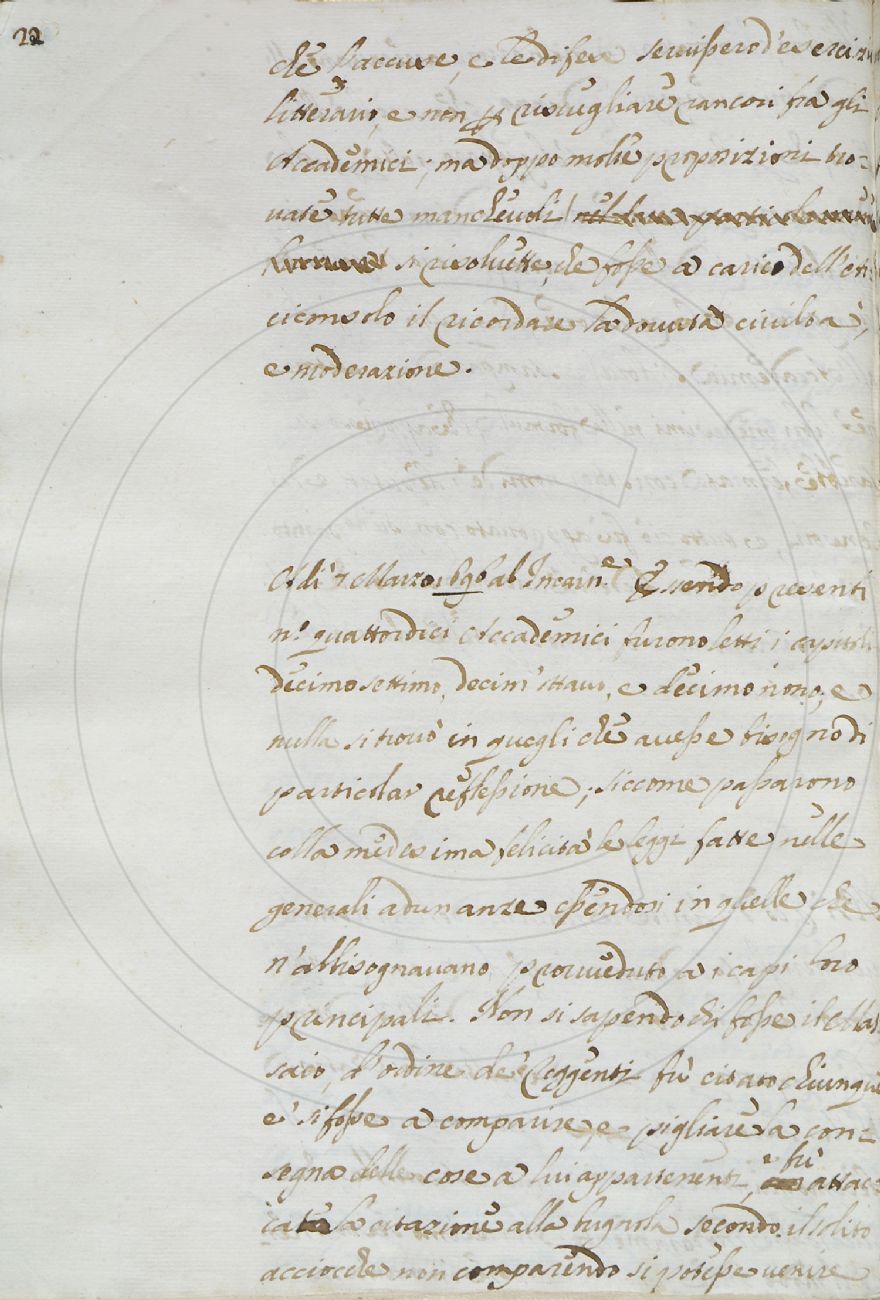 22
che l'accuse, e le difese servissero d'eserciz
litterario, e non p risvegliare rancori fra gli
Accademici; ma doppo molte proposizioni tro=
vate tutte manchevoli
si risolvette, che fosse a carico dell'Ar
ciconsolo il ricordare la dovuta civiltà,
e moderazione.
Adì 7 Marzo 1696 ab Incarn.e Essendo presenti
n.o quattordici Accademici furono letti i capitoli
decimo settimo, decim'ottavo, e decimo nono, e
nulla si trovò in quegli che avesse bisogno di
particolar reflessione; siccome passarono
colla medesima felicità le leggi fatte nelle
generali adunanze essendosi in quelle che
n'abbisognavano provveduto a i capi loro
principali. Non si sapendo chi fosse il Mas
saio, d'ordine de' Reggenti fù citato chiunque
e' si fosse a comparire, e pigliare la con=
segna delle cose a lui appartenenti, e fù attac=
cata la citazione alla bugnola secondo il solito
acciocche non comparendo si potesse venire